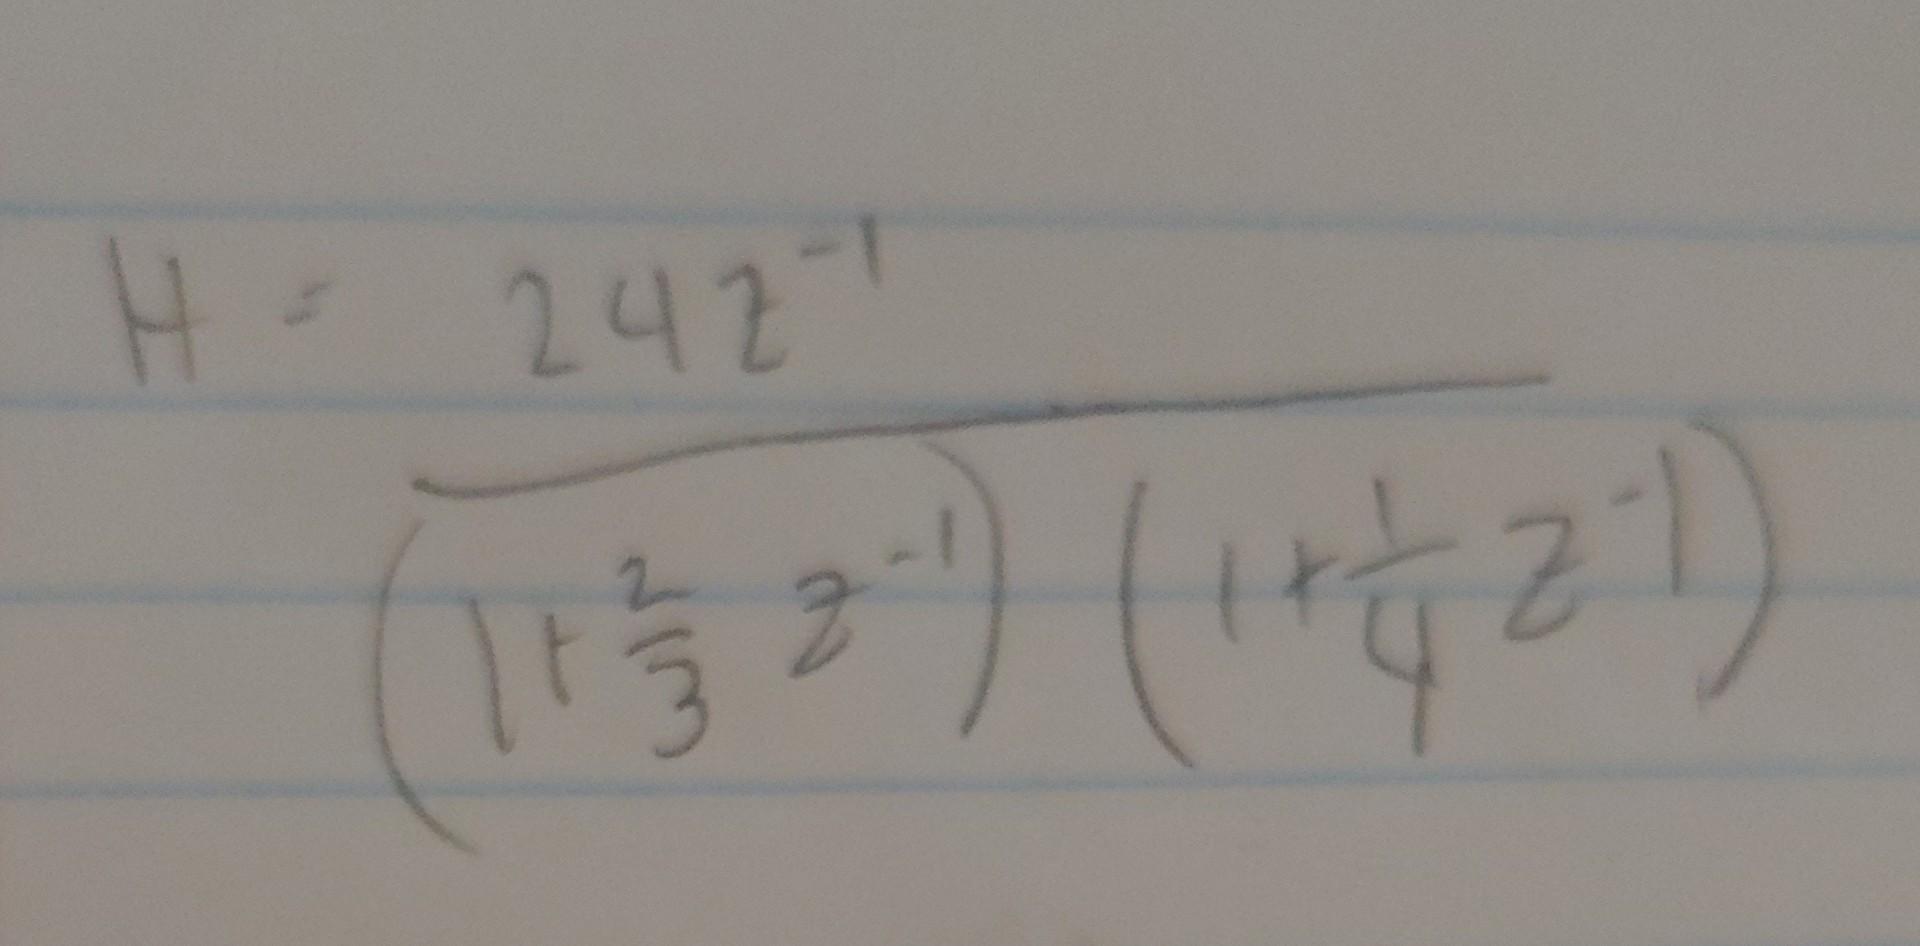 H = 24z⁻¹
(1+2/3 z⁻¹) (1+1/4 z⁻¹)